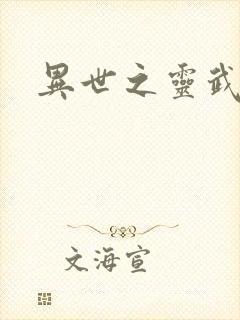 異世之靈武
文海宣